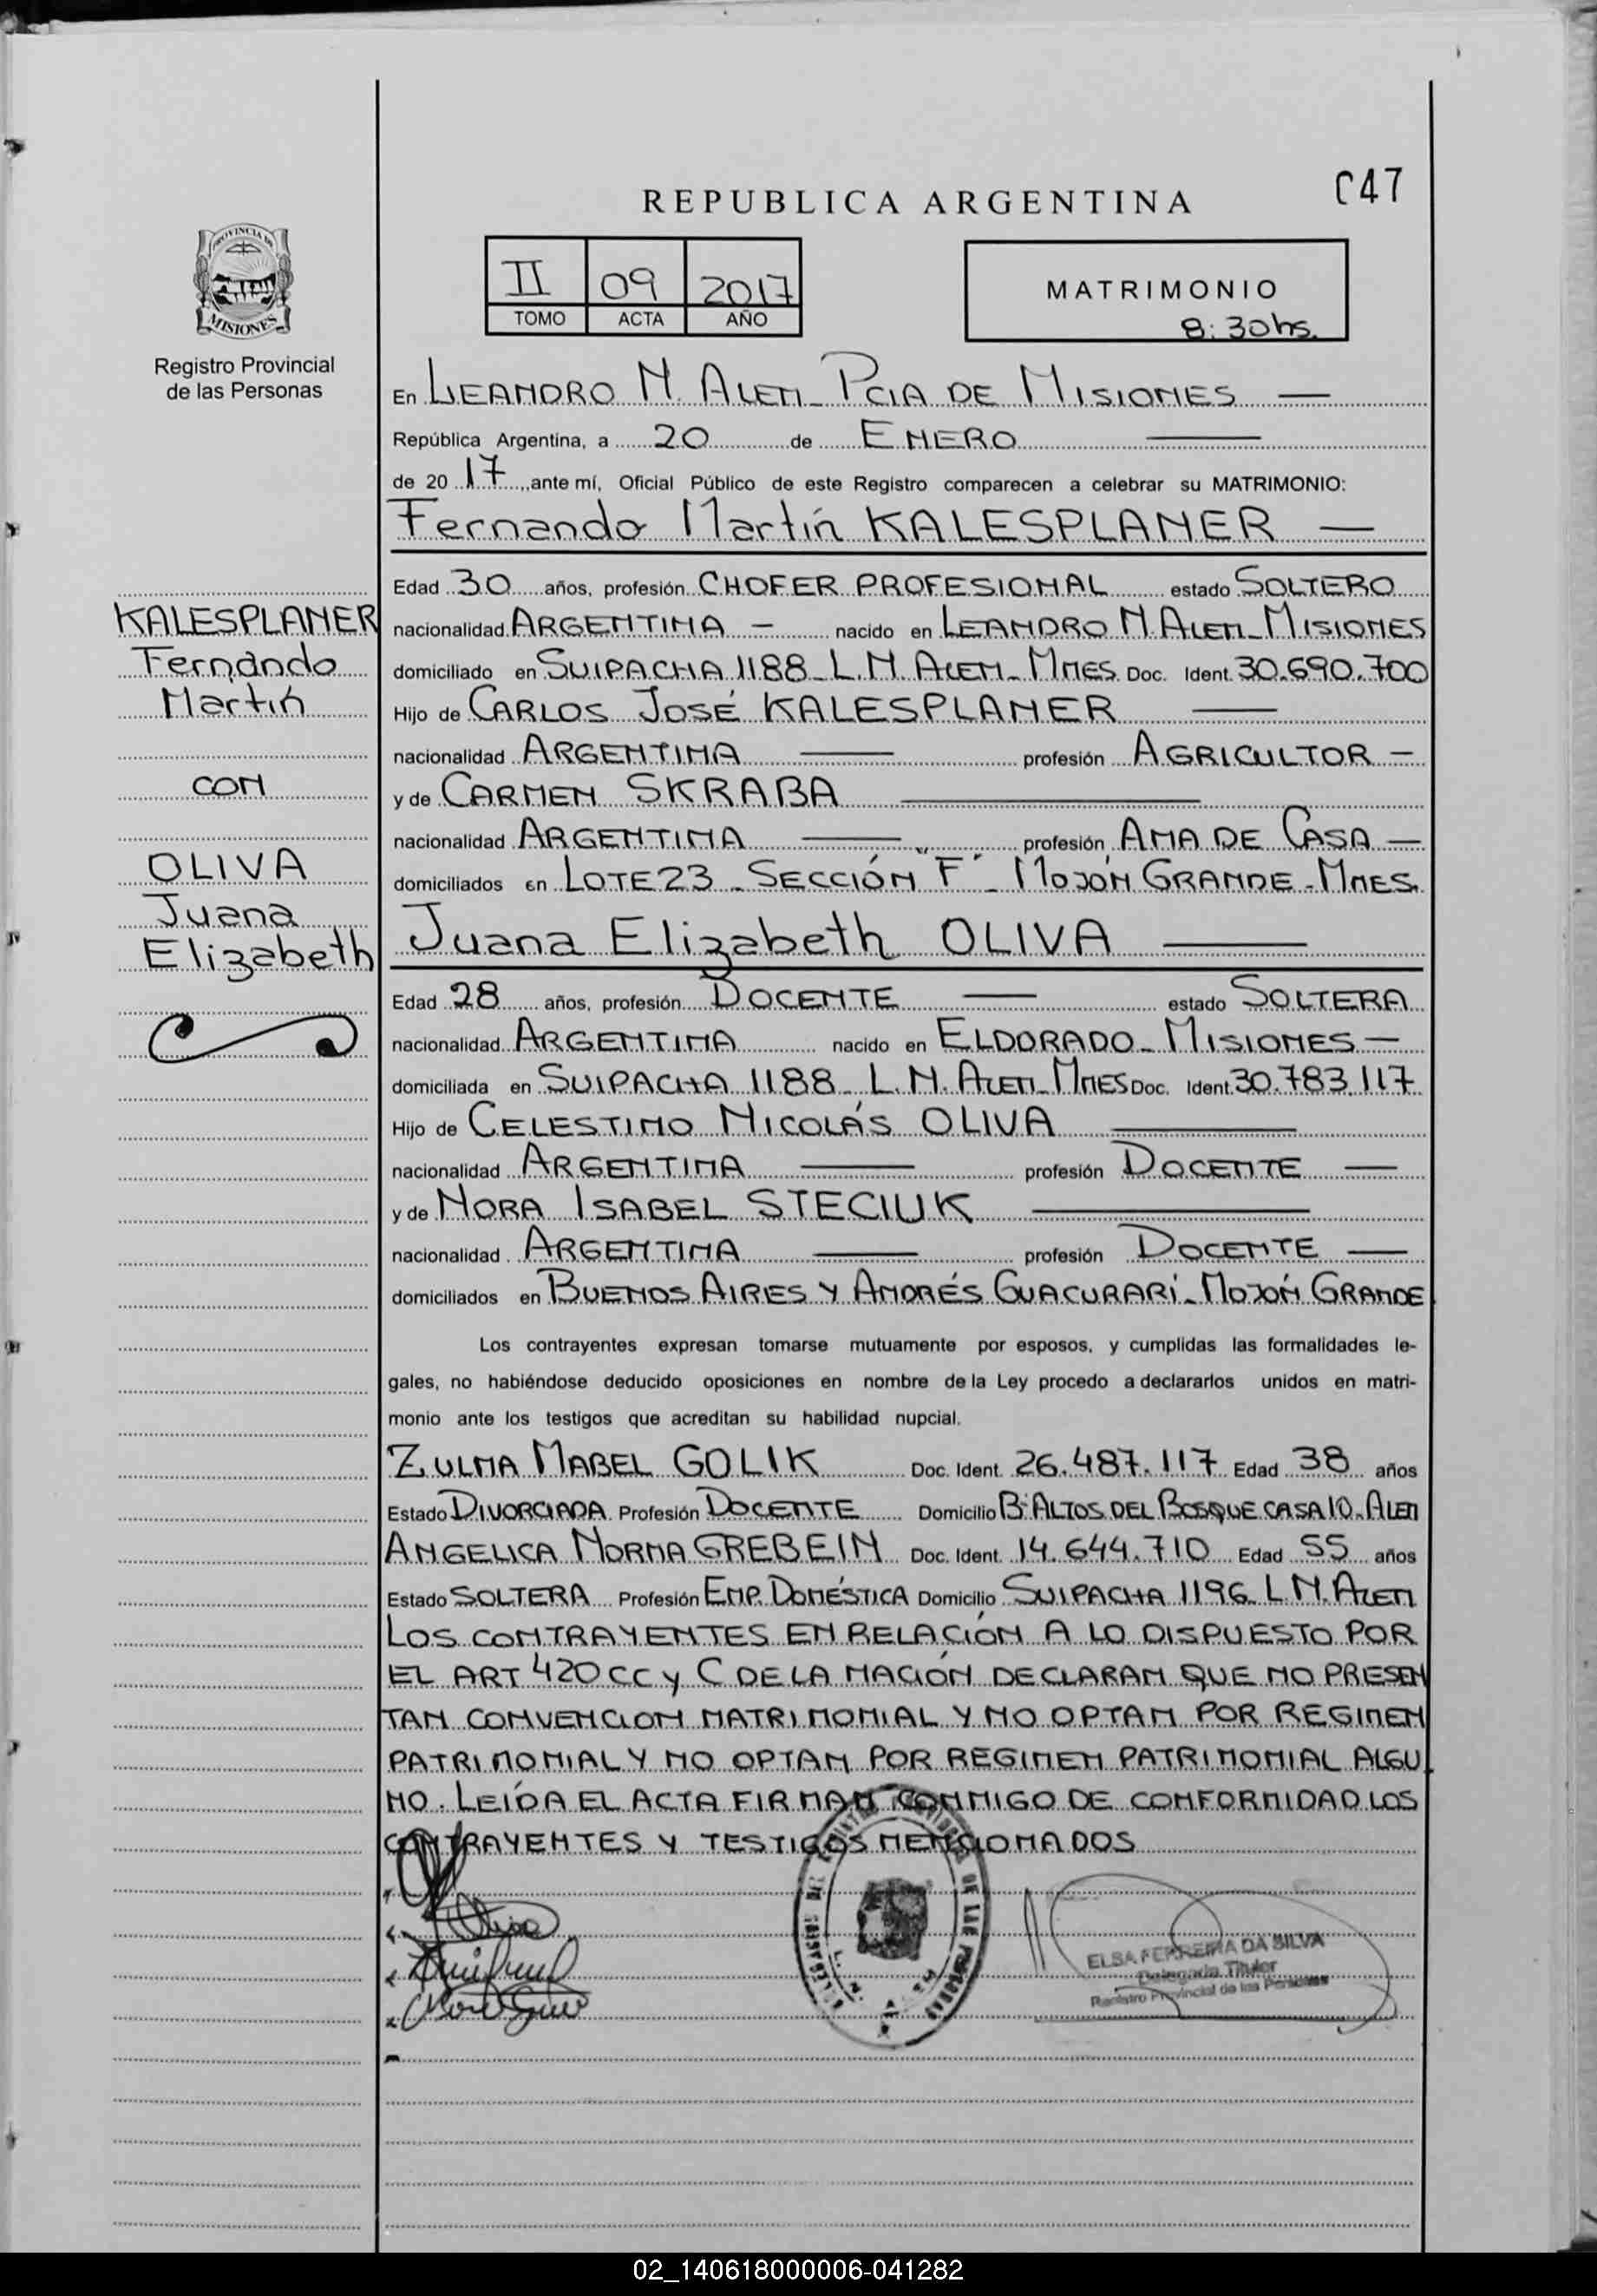 C47
REPUBLICA ARGENTINA
PROVINCIA DE
MISIONES
Registro Provincial
de las Personas
II 09 2017
TOMO ACTA AÑO
MATRIMONIO
8:30hs.
En LEANDRO N. ALEM_ PCIA DE MISIONES —
República Argentina, a 20 de ENERO
de 20 17, ante mí, Oficial Público de este Registro comparecen a celebrar su MATRIMONIO:
Fernando Martín KALESPLANER —
Edad 30 años, profesión CHOFER PROFESIONAL estado SOLTERO
nacionalidad ARGENTINA — nacido en LEANDRO N. ALEM_ MISIONES
domiciliado en SUIPACHA 1188_ L.N. ALEM_ MNES. Doc. Ident. 30.690.700
Hijo de CARLOS JOSÉ KALESPLANER
nacionalidad ARGENTINA profesión AGRICULTOR —
y de CARMEN SKRABA
nacionalidad ARGENTINA profesión AMA DE CASA —
domiciliados en LOTE 23 _ SECCIÓN "F" _ MOJÓN GRANDE _ MNES.
Juana Elizabeth OLIVA
Edad 28 años, profesión DOCENTE estado SOLTERA
nacionalidad ARGENTINA nacido en ELDORADO_ MISIONES —
domiciliada en SUIPACHA 1188_ L.N. ALEM_ MNES Doc. Ident. 30.783.117
Hijo de CELESTINO NICOLÁS OLIVA
nacionalidad ARGENTINA profesión DOCENTE —
y de NORA ISABEL STECIUK
nacionalidad ARGENTINA profesión DOCENTE —
domiciliados en BUENOS AIRES Y ANDRÉS GUACURARÍ_ MOJÓN GRANDE
Los contrayentes expresan tomarse mutuamente por esposos, y cumplidas las formalidades le-
gales, no habiéndose deducido oposiciones en nombre de la Ley procedo a declararlos unidos en matri-
monio ante los testigos que acreditan su habilidad nupcial.
ZULMA MABEL GOLIK Doc. Ident. 26.487.117 Edad 38 años
Estado DIVORCIADA Profesión DOCENTE Domicilio B° ALTOS DEL BOSQUE CASA 10. ALEM
ANGELICA NORMA GREBEIN Doc. Ident. 14.644.710 Edad 55 años
Estado SOLTERA Profesión EMP. DOMÉSTICA Domicilio SUIPACHA 1196_ L.N. ALEM
LOS CONTRAYENTES EN RELACIÓN A LO DISPUESTO POR
EL ART 420 CC y C DE LA NACIÓN DECLARAN QUE NO PRESEN
TAN CONVENCION MATRIMONIAL Y NO OPTAN POR REGIMEN
PATRIMONIAL Y NO OPTAN POR REGIMEN PATRIMONIAL ALGU
NO. LEÍDA EL ACTA FIRMAN CONMIGO DE CONFORMIDAD LOS
CONTRAYENTES Y TESTIGOS MENCIONADOS
ELSA FERREIRA DA SILVA
Delegada Titular
Registro Provincial de las Personas
KALESPLANER
Fernando
Martín
CON
OLIVA
Juana
Elizabeth
02_140618000006-041282